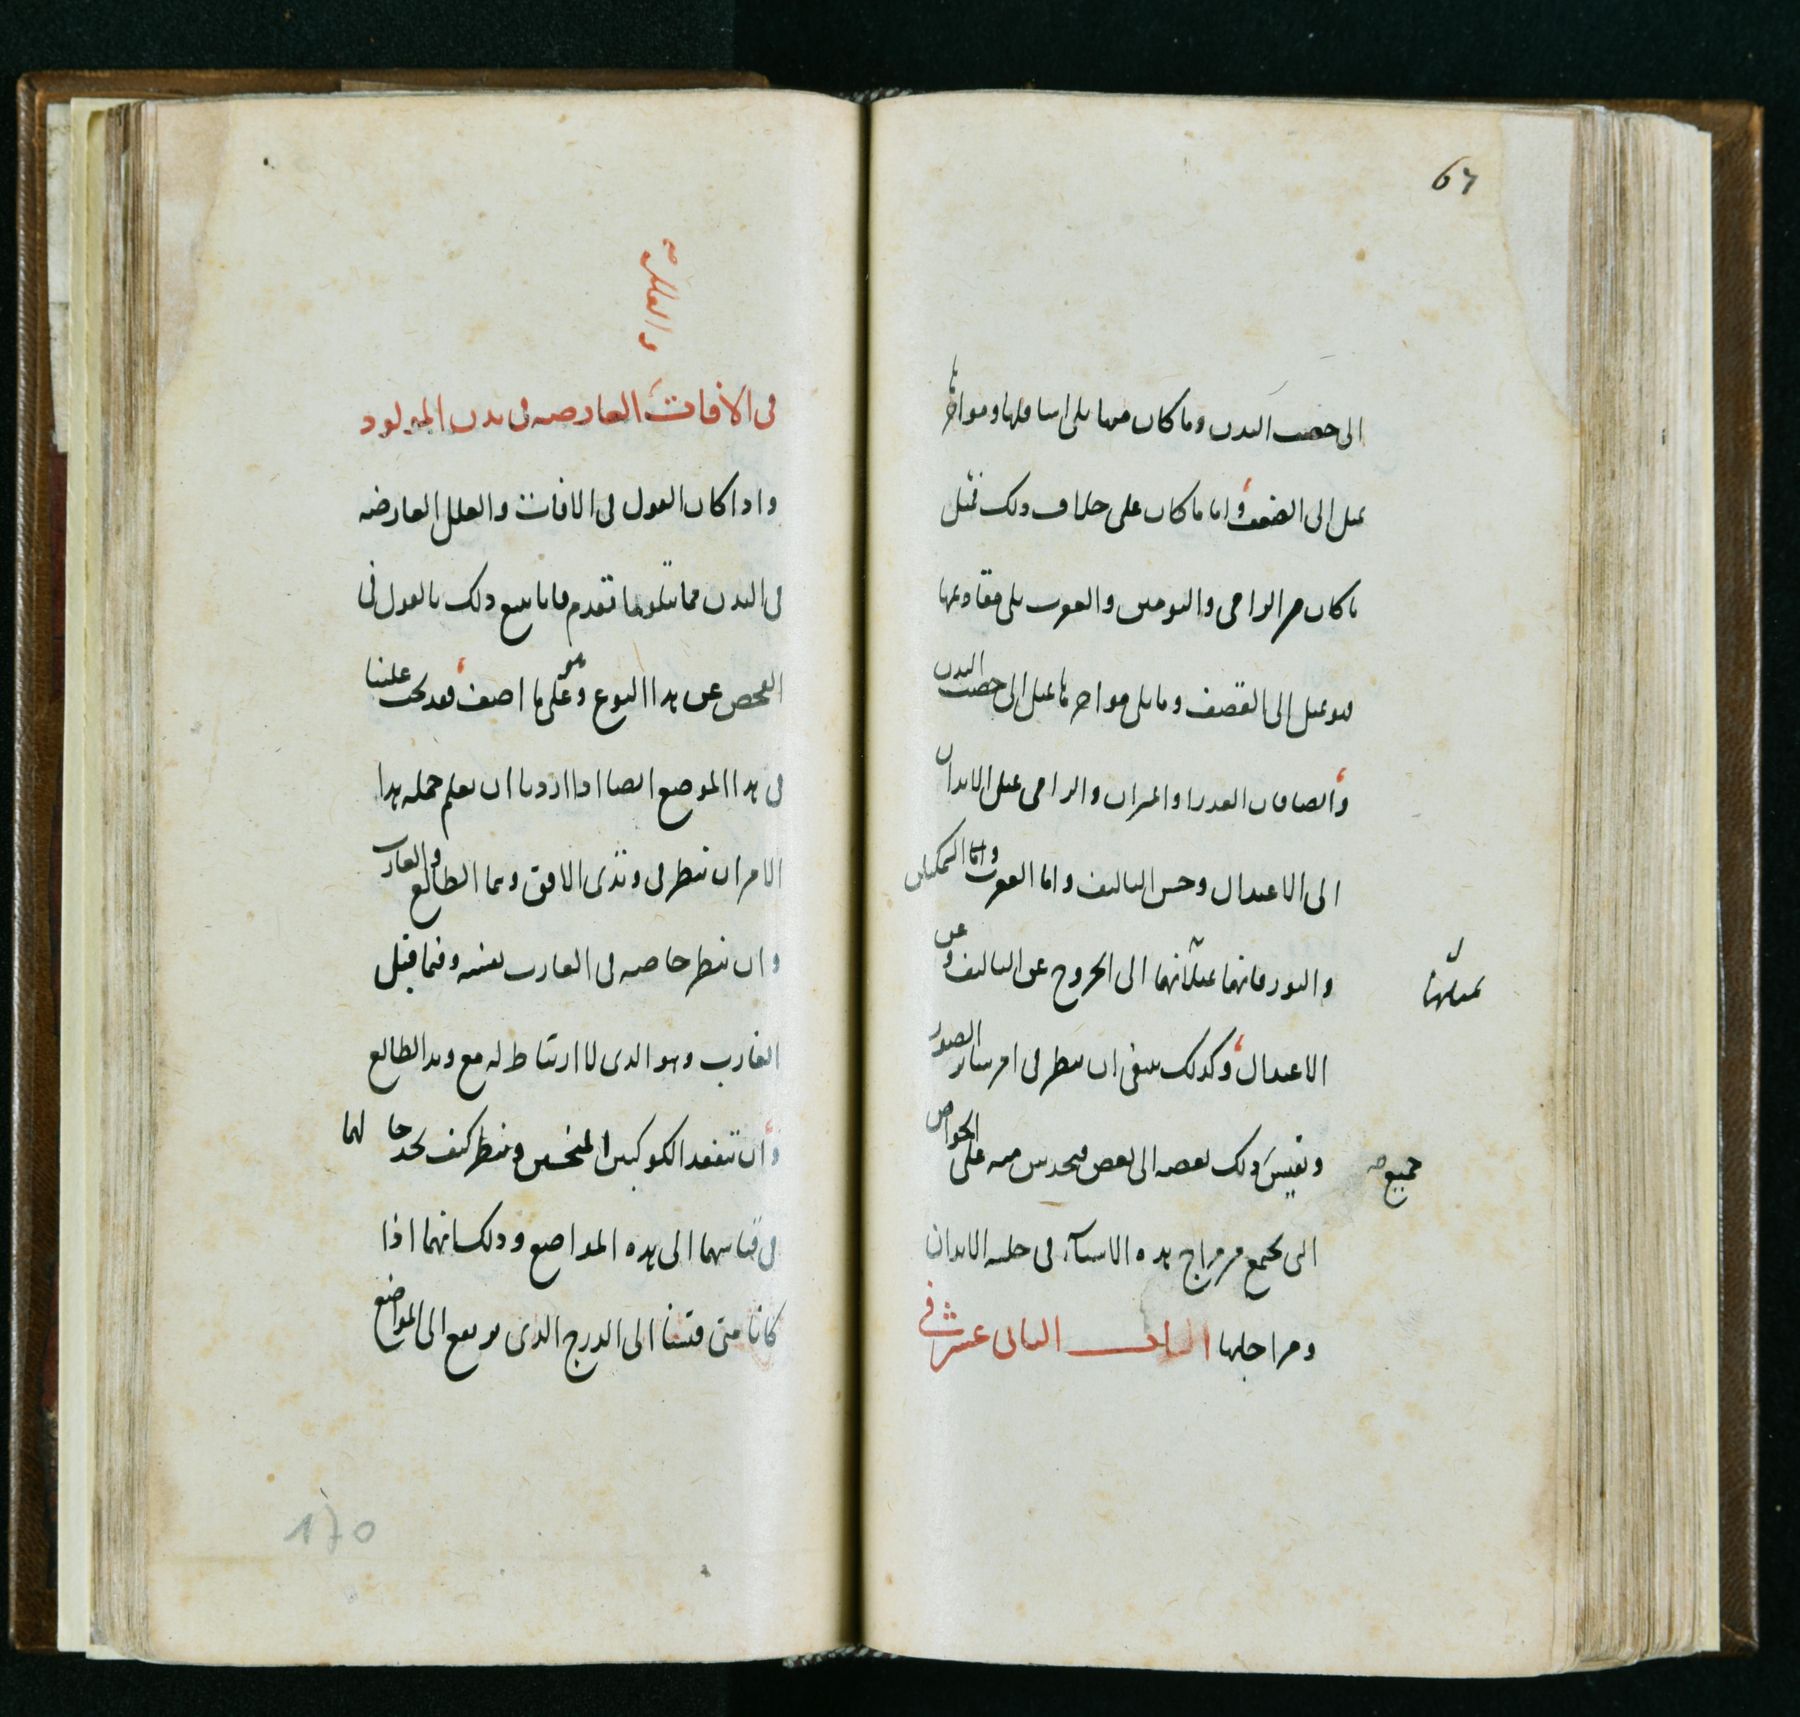 67
الى خصب البدن وما كان منها يلى اسافلها ومواخرها
يميل الى الضعف واما ما كان على خلاف ذلك فمثل
ما كان من الرامى والتومين والعقرب يلى مقاديمها
فهو يميل الى القصف وما يلى مواخرها يميل الى خصب البدن
وايضا فان العذرا والميزان والرامى يميل الابدان
الى الاعتدال وحسن التاليف واما العقرب واما السمكتان
والثور فانهما يميلانهما الى الخروج عن التاليف وعن
يميلها
الاعتدال وكذلك ينبغى ان ينظر فى امر سائر الصور
ونقيس ذلك بعضه الى بعض فيحدس منه على الخواص
جميع صح
التى تجتمع من مزاج هذه الاشياء فى حلية الابدان
ومزاجها الباب الثانى عشر فى
والعلل صح
فى الآفات العارضه فى بدن المولود
واذا كان القول فى الافات والعلل العارضه
فى البدن مما يتلو ما تقدم فانا نتبع ذلك بالقول فى
الفحص عن هذا النوع وهو على ما اصف فقد يجب علينا
فى هذا الموضع ايضا اذا اردنا ان نعلم جملة هذا
الامر ان ننظر فى وتدى الافق وهما الطالع والغارب
وان ننظر خاصه فى الغارب نفسه وفيما قبل
الغارب وهو الذى لا ارتباط له مع وتد الطالع
وان نتفقد الكوكبين المنحسين وننظر كيف نجدحالهما
فى قياسهما الى هذه المواضع وذلك انهما اذا
كانا متى قسنا الى الدرج الذى يرتفع الى المواضع
170